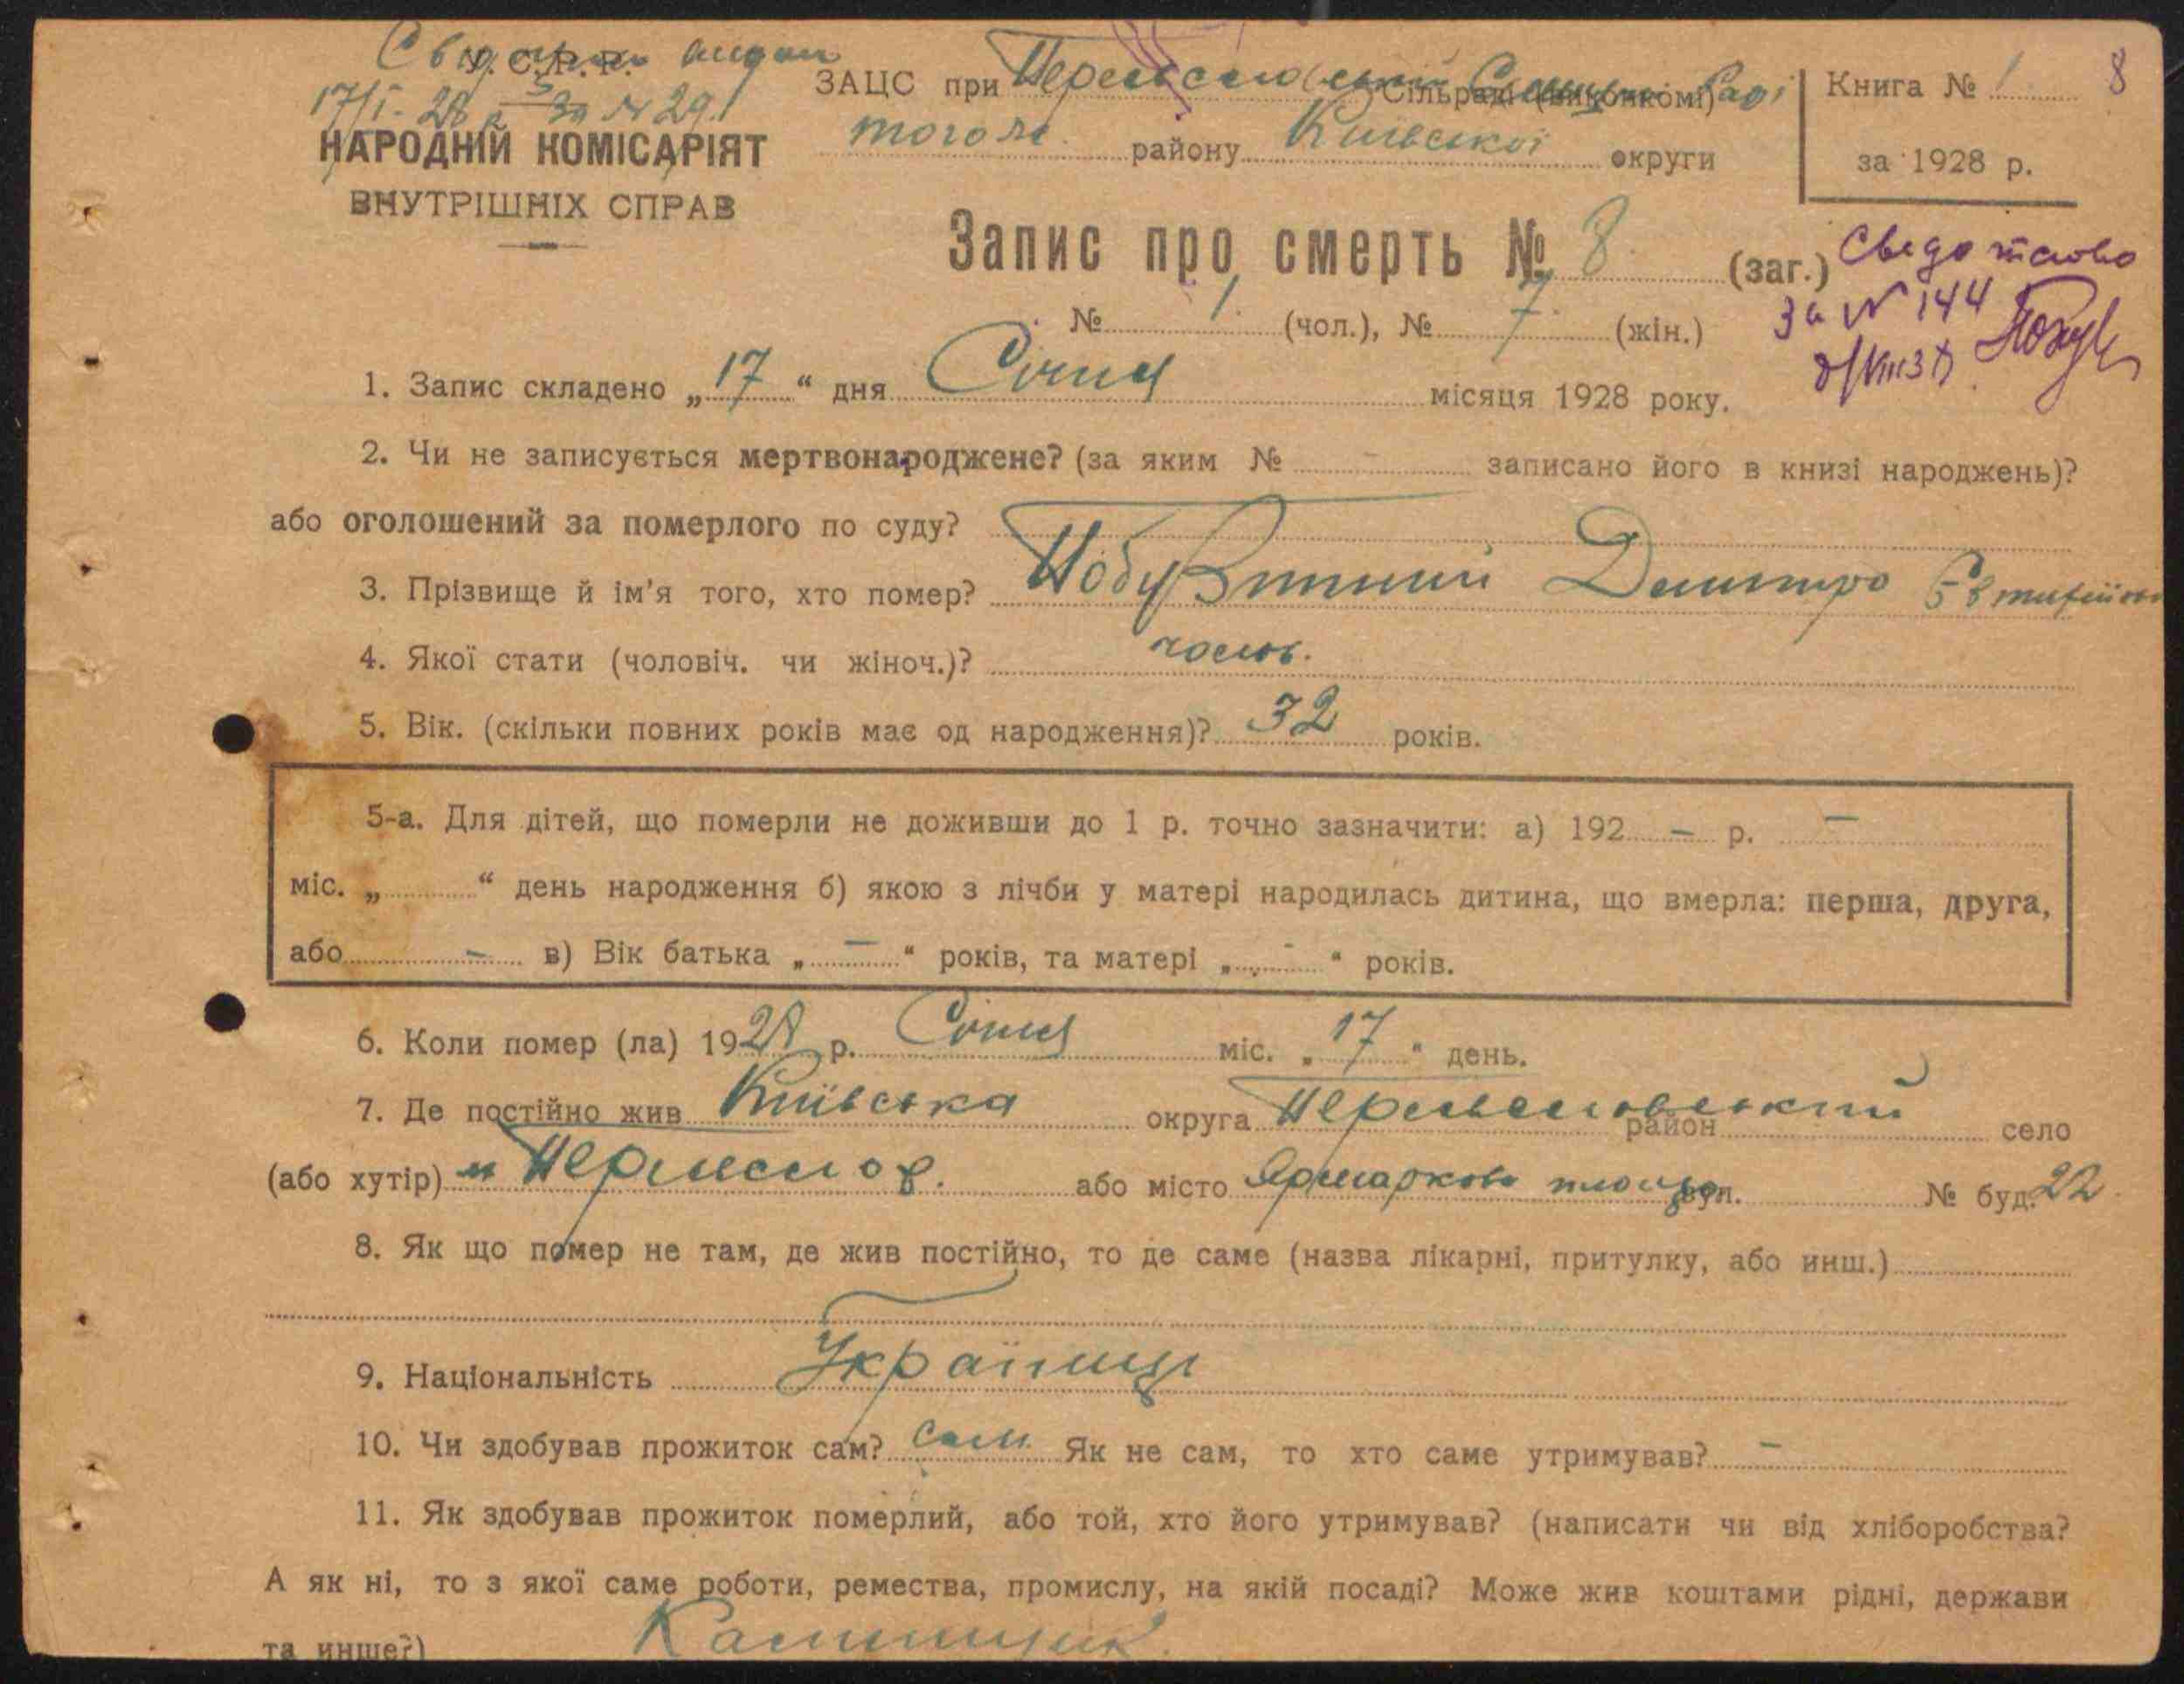 Свідоцтво видан
У. С. Р. Р.
17/I-28 р за № 29
ЗАЦС при Переяславський Селищн. Раді Сільраді (виконкомі)
Книга № 1. 8
НАРОДНІЙ КОМІСАРІЯТ
ВНУТРІШНІХ СПРАВ
того ж району Київської округи
за 1928 р.
Запис про смерть № 8 (заг.)
№ 1. (чол.), № 7. (жін.)
Сведотство
За № 144
1. Запис складено „17“ дня Січня місяця 1928 року.
2. Чи не записується мертвонароджене? (за яким № - записано його в книзі народжень)?
або оголошений за померлого по суду?
3. Прізвище й ім'я того, хто помер? Дмитро
4. Якої стати (чоловіч. чи жіноч.)? чолов.
5. Вік. (скільки повних років має од народження)? 32 років.
5-а. Для дітей, що померли не доживши до 1 р. точно зазначити: а) 192 – р. –
міс. „ “ день народження б) якою з лічби у матері народилась дитина, що вмерла: перша, друга,
або – в) Вік батька „ – “ років, та матері „ - “ років.
6. Коли помер (ла) 1928 р. Січня міс. „17“ день.
7. Де постійно жив Київська округа Переяславський район село
(або хутір) м Переяслов. або місто Ярмаркова площа вул. № буд. 22
8. Як що помер не там, де жив постійно, то де саме (назва лікарні, притулку, або инш.)
9. Національність Українець
10. Чи здобував прожиток сам? Сам Як не сам, то хто саме утримував? –
11. Як здобував прожиток померлий, або той, хто його утримував? (написати чи від хліборобства?
А як ні, то з якої саме роботи, ремества, промислу, на якій посаді? Може жив коштами рідні, держави
та инше?)